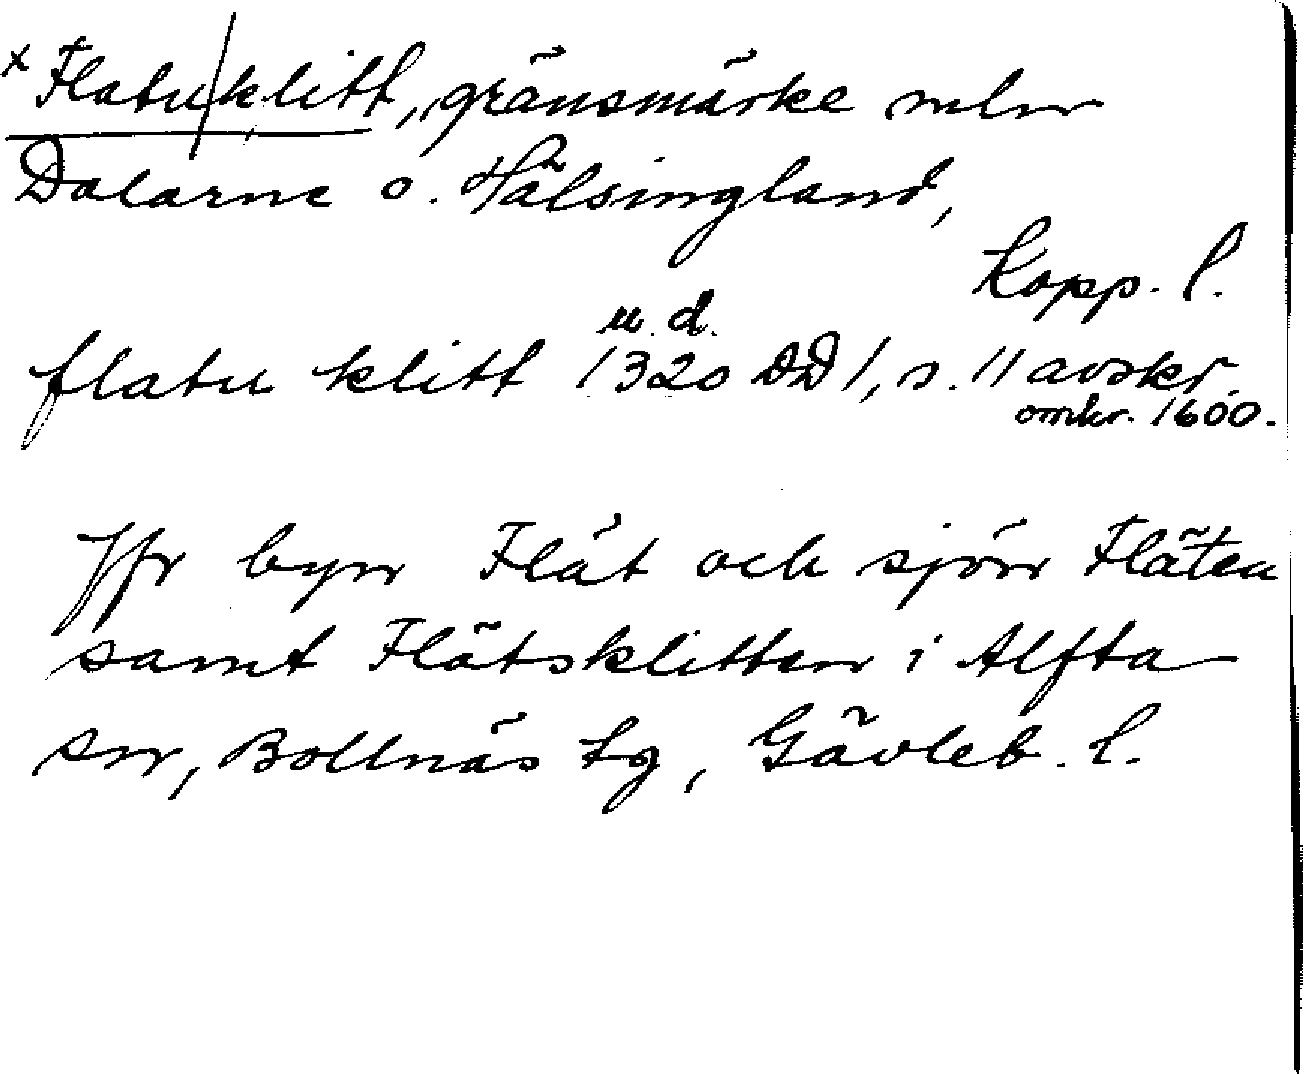 x Flatu/klitt, gränsmärke mln
Dalarne o. Hälsingland,
Kopp. l.
u. d.
flatu klitt 1320 DD 1, s. 11 avskr.
omkr. 1600.
Jfr byn Flät och sjön Fläten
samt Flätsklitten i Alfta
sn, Bollnäs tg, Gävleb. l.